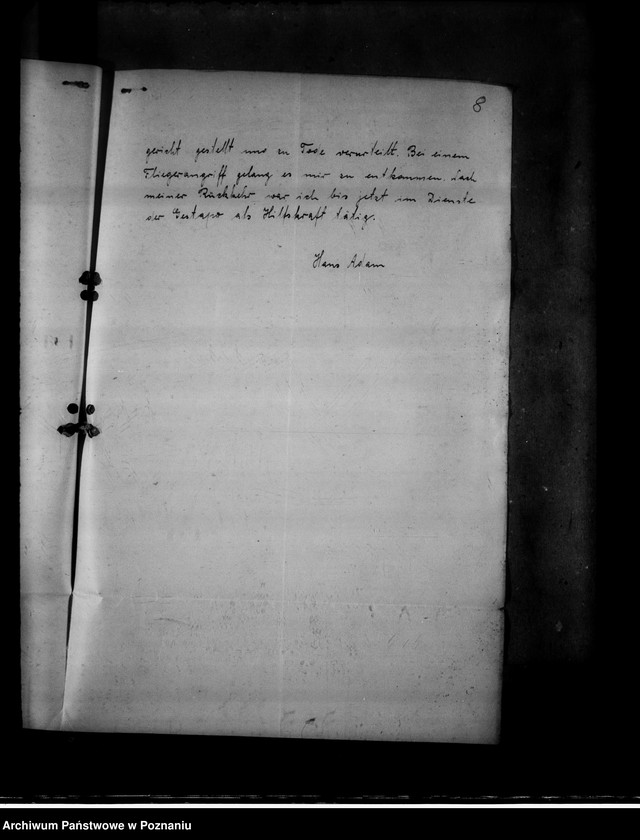 8
gericht gestellt und zu Tode verurteilt. Bei einem
Fliegerangriff gelang es mir zu entkommen. Nach
meiner Rückkehr war ich bis jetzt im Dienste
der Gestapo als Hilfskraft tätig.
Hans Adam
Archiwum Państwowe w Poznaniu